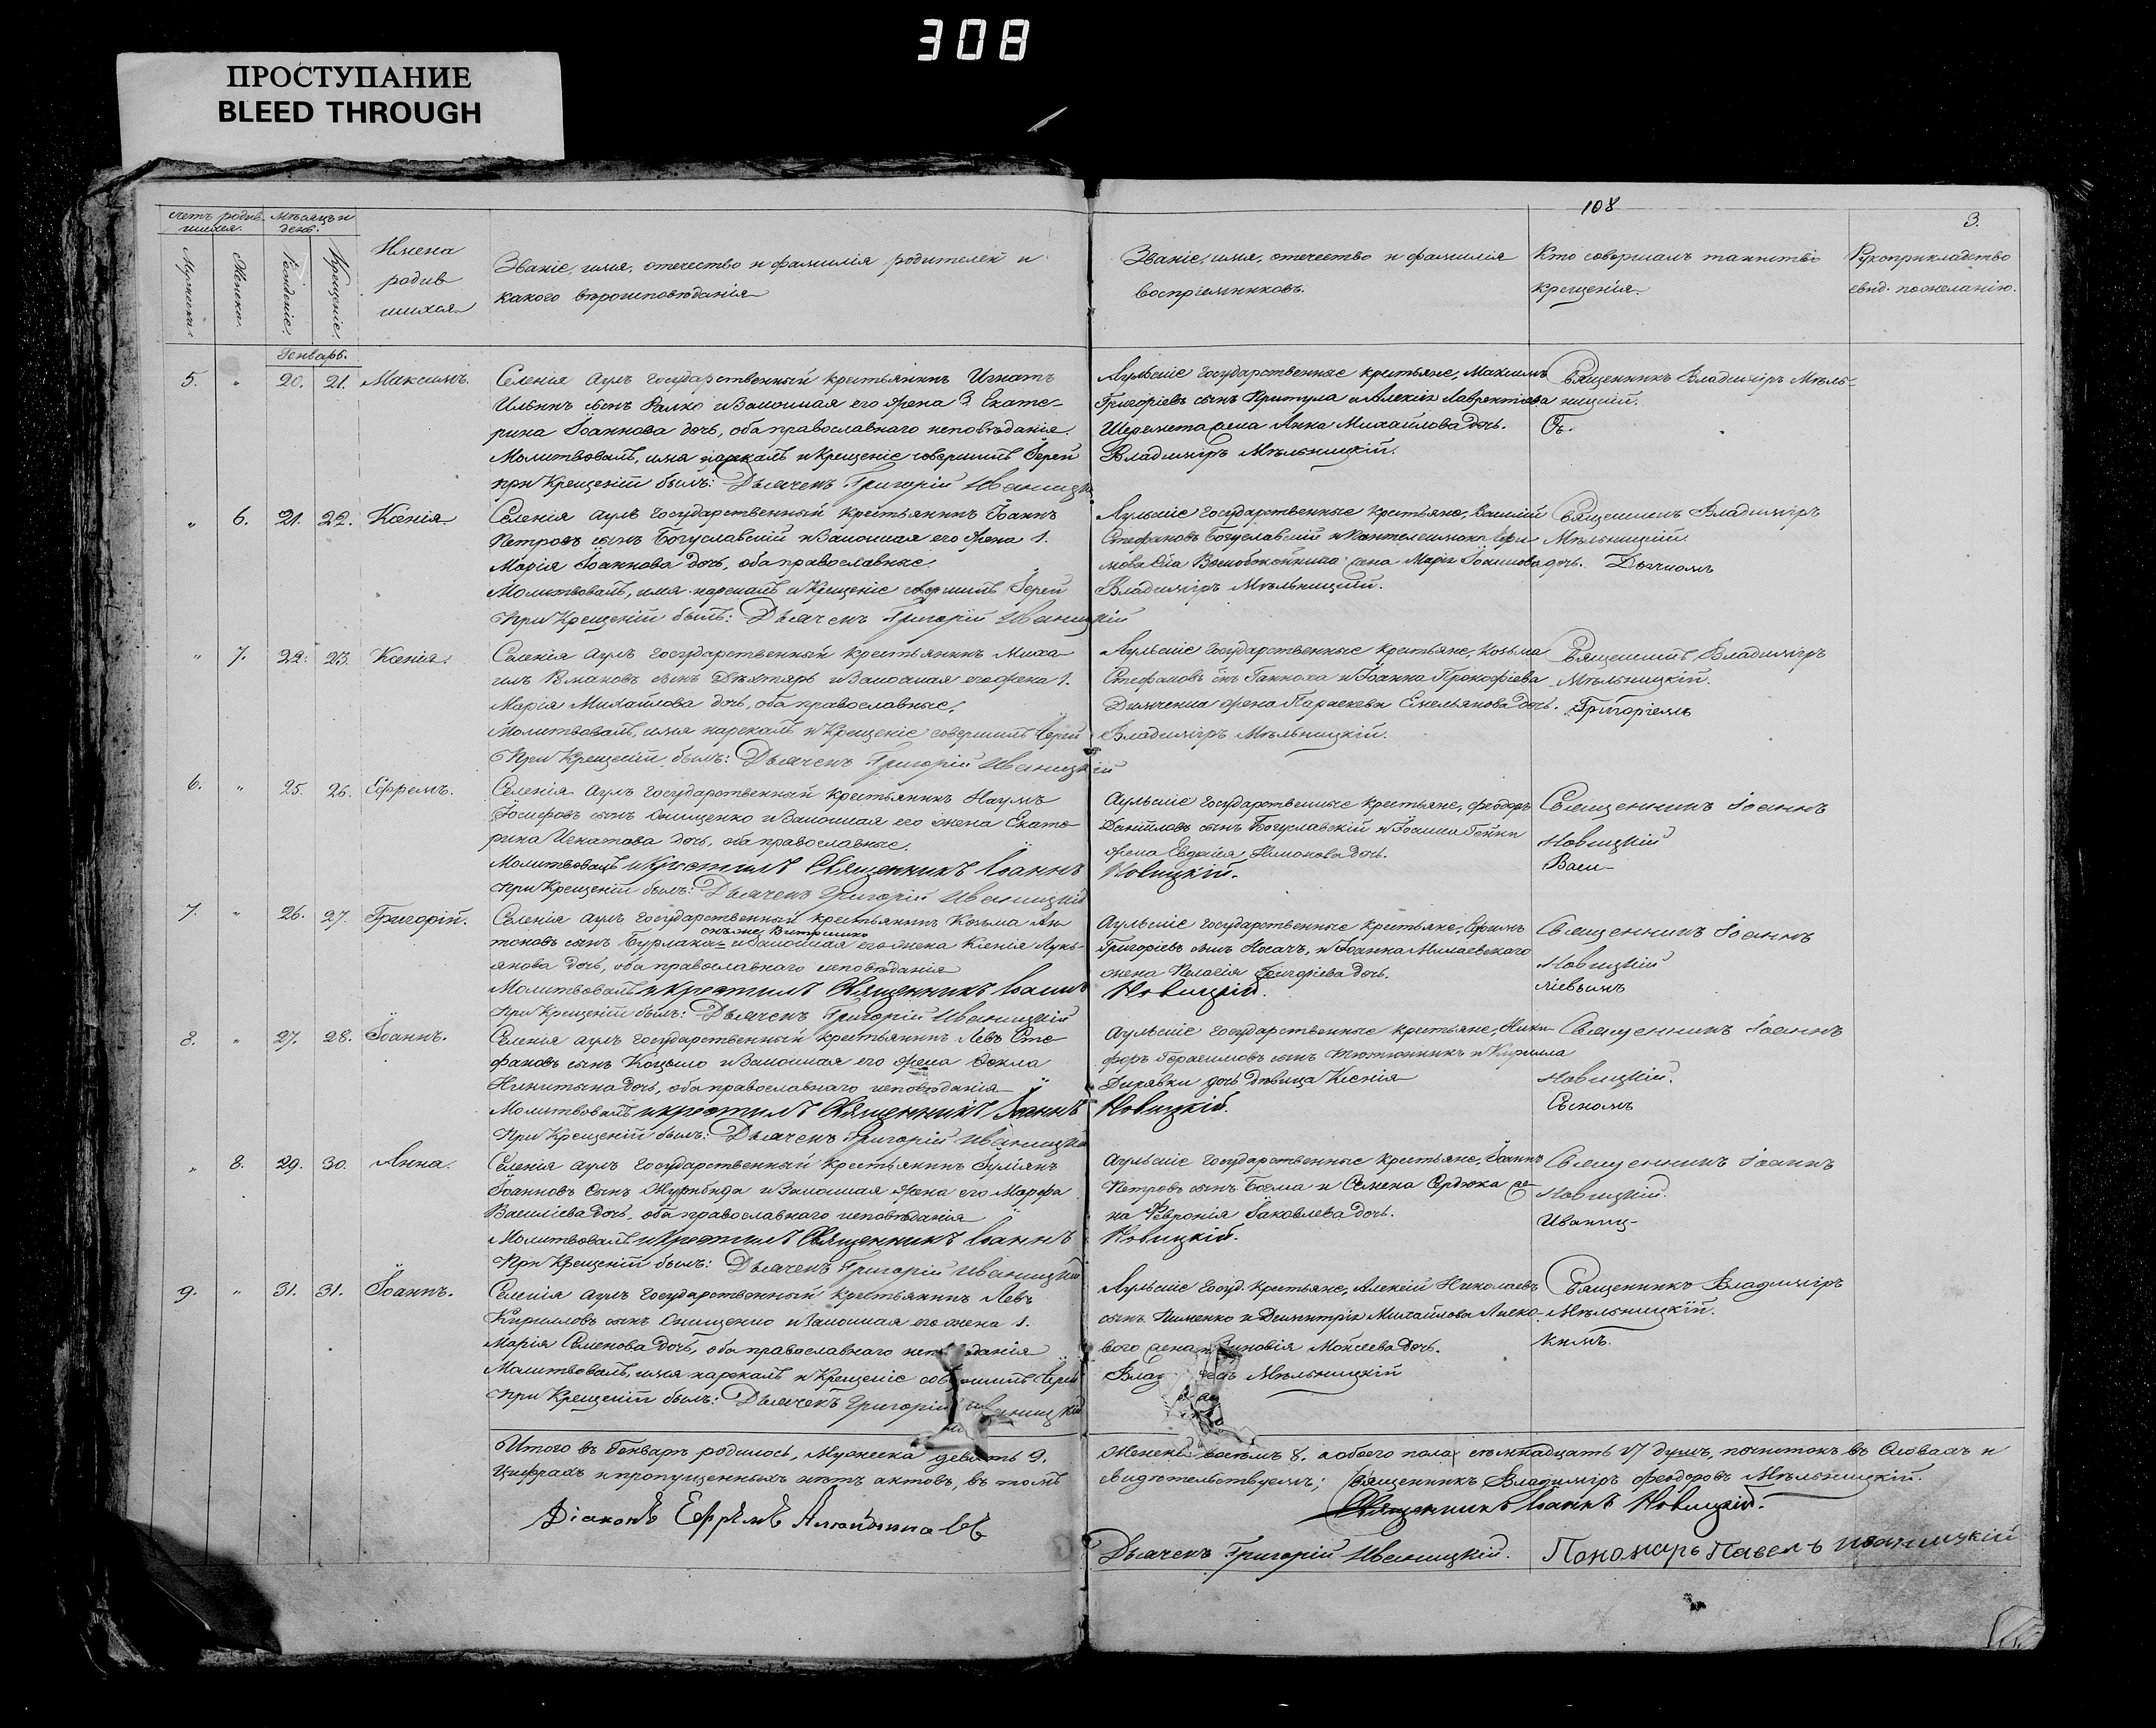 308
ПРОСТУПАНИЕ
BLEED THROUGH
108
3.
Счетъ родив-
шихся.
Мѣсяцъ и
день.
Мужеска.
Женска.
Рожденіе.
Крещеніе.
Имена
родив
шихся
Званіе, имя, отечество и фамилія родителей и
какого вѣроисповѣданія
Званіе, имя, отечество и фамилія
воспріемниковъ.
Кто совершалъ таинство
крещенія.
Рукоприкладство
свид. по желанію.
Генварь.
5. " 20. 21. Максимъ.
Селенія Аулъ государственный крестьянинъ Игнатъ
Ильинъ сынъ Ралко и Законная его жена 3. Екате-
рина Іоаннова дочь, оба православнаго исповѣданія.
Молитвовалъ, имя нарекалъ и крещеніе совершилъ Іерей
при Крещеніи былъ: Дьячекъ Григорій Иваницкій
Аульскіе государственные крестьяне, Максимъ
Григоріевъ сынъ Притула и Алексія Лаврентіева
Шеремета жена Анна Михайлова дочь.
Владиміръ Мѣльницкій.
Священникъ Владиміръ Мѣль-
ницкій.
Съ.
" 6. 21. 22. Ксенія
Селенія Аулъ государственный крестьянинъ Іоаннъ
Петровъ сынъ Богуславскій и Законная его жена 1.
Марія Іоаннова дочь, оба православные.
Молитвовалъ, имя нарекалъ и Крещеніе совершилъ Іерей
При Крещеніи былъ: Дьячекъ Григорій Иваницкій
Аульскіе государственные крестьяне, Василій
Стефановъ Богуславскій и Пантелеимона
жена Марія Іоаннова дочь.
Владиміръ Мѣльницкій.
Священникъ Владиміръ
Мѣльницкій.
Дьячкомъ
" 7. 22. 23. Ксенія.
Селенія Аулъ государственный крестьянинъ Миха-
илъ Романовъ сынъ Дѣхтярь и Законная его жена 1.
Марія Михайлова дочь, оба православные.
Молитвовалъ, имя нарекалъ и Крещеніе совершилъ Іерей
При Крещеніи былъ: Дьячекъ Григорій Иваницкій
Аульскіе государственные крестьяне, Козьма
Стефановъ сынъ Ганноха и Іоанна Прокофіева
жена Параскева Емельянова дочь.
Владиміръ Мѣльницкій.
Священникъ Владиміръ
Мѣльницкій.
Григоріемъ
6. " 25. 26. Ефремъ.
Селенія Аулъ государственный крестьянинъ Наумъ
Іосифовъ сынъ Онищенко и Законная его жена Екате-
рина Игнатова дочь, оба православные.
Молитвовалъ и крестилъ Священникъ Іоаннъ
при Крещеніи былъ: Дьячекъ Григорій Иваницкій
Аульскіе государственные крестьяне, Феодоръ
Даніиловъ сынъ Богуславскій и Іоанна
жена Евдокія дочь.
Новицкій.
Священникъ Іоаннъ
Новицкій
Васи-
7. " 26. 27. Григорій.
Селенія Аулъ государственный крестьянинъ Козьма Ан-
тоновъ сынъ Бурлака и Законная его жена Ксенія Лукь-
янова дочь, оба православнаго исповѣданія
Молитвовалъ и крестилъ Священникъ Іоаннъ
При Крещеніи былъ: Дьячекъ Григорій Иваницкій
Аульскіе государственные крестьяне, Ефимъ
Григоріевъ сынъ Носачъ, и Іоанна
жена Пелагія Григоріева дочь.
Новицкій.
Священникъ Іоаннъ
Новицкій
ліевымъ
8. " 27. 28. Іоаннъ.
Селенія Аулъ государственный крестьянинъ Левъ Сте-
фановъ сынъ Коцыло и Законная его жена Фекла
Никитина дочь, оба православнаго исповѣданія
Молитвовалъ и крестилъ Священникъ Іоаннъ
При Крещеніи былъ: Дьячекъ Григорій Иваницкій
Аульскіе государственные крестьяне, Ники-
форъ Герасимовъ сынъ Тютюнникъ и Кирилла
Дирявки дочь дѣвица Ксенія
Новицкій.
Священникъ Іоаннъ
Новицкій.
Сыномъ
" 8. 29. 30. Анна.
Селенія Аулъ государственный крестьянинъ
Іоанновъ сынъ Журибида и Законная жена его Марфа
Василіева дочь, оба православнаго исповѣданія
Молитвовалъ и крестилъ Священникъ Іоаннъ
При Крещеніи былъ: Дьячекъ Григорій Иваницкій
Аульскіе государственные крестьяне, Іоаннъ
Петровъ сынъ и Семена Сердюка же-
на Февронія Іаковлева дочь.
Новицкій.
Священникъ Іоаннъ
Новицкій.
Иваниц-
9. " 31. 31. Іоаннъ.
Селенія Аулъ государственный крестьянинъ Левъ
Кириловъ сынъ Онищенко и Законная его жена 1.
Марія Семенова дочь, оба православнаго исповѣданія
Молитвовалъ, имя нарекалъ и Крещеніе совершилъ Іерей
при Крещеніи былъ: Дьячекъ Григорій Иваницкій
Аульскіе госуд. крестьяне, Алексій Николаевъ
сынъ Пименко и Димитрія Михайлова Лиско-
вого жена Зиновія Моисеева дочь.
Мѣльницкій
Священникъ Владиміръ
Мѣльницкій.
кимъ.
Итого въ Генварѣ родилось, Мужеска девять 9.
Женска восемь 8. а обоего пола семнадцать 17 душъ, почистокъ въ словахъ и
цифрахъ и пропущенныхъ нѣтъ актовъ, въ томъ
свидѣтельствуемъ; Священникъ Владиміръ Феодоровъ Мѣльницкій.
Священникъ Іоаннъ Новицкій.
Діаконъ Ефрѣмъ
Дьячекъ Григорій Иваницкій.
Пономарь Павелъ Иваницкій